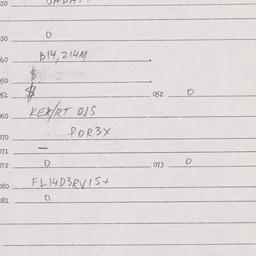 030 0
040 B14,214M
050 $
051 $ 052 0
060 KEX/RT OJS
070 POR3X
071 —
072 0 073 0
080 FL14D3RVIS+
081 0